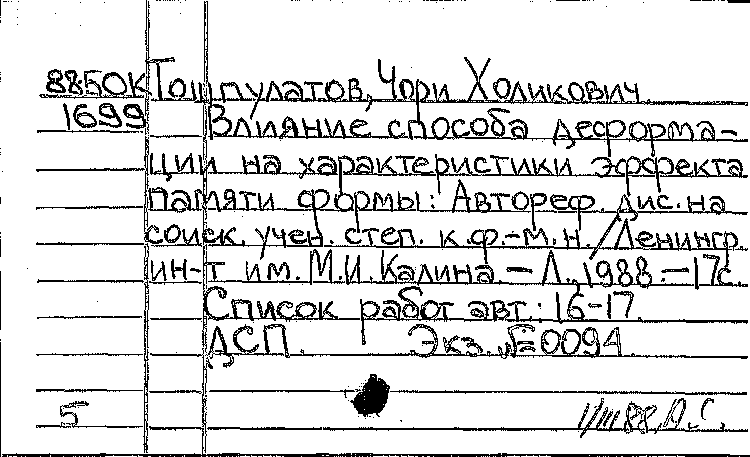 88-50K Тошпулатов, Чори Холикович.
1699 Влияние способа деформа-
ции на характеристики эффекта
памяти формы: Автореф. дис. на
соиск. учен. степ. к.ф.-м.н. / Ленингр.
ин-т им. М.И. Калина. – Л., 1988. – 17с.
Список работ авт.: 16-17.
ДСП. Экз. №0094.
5 1/III 88, А.С.